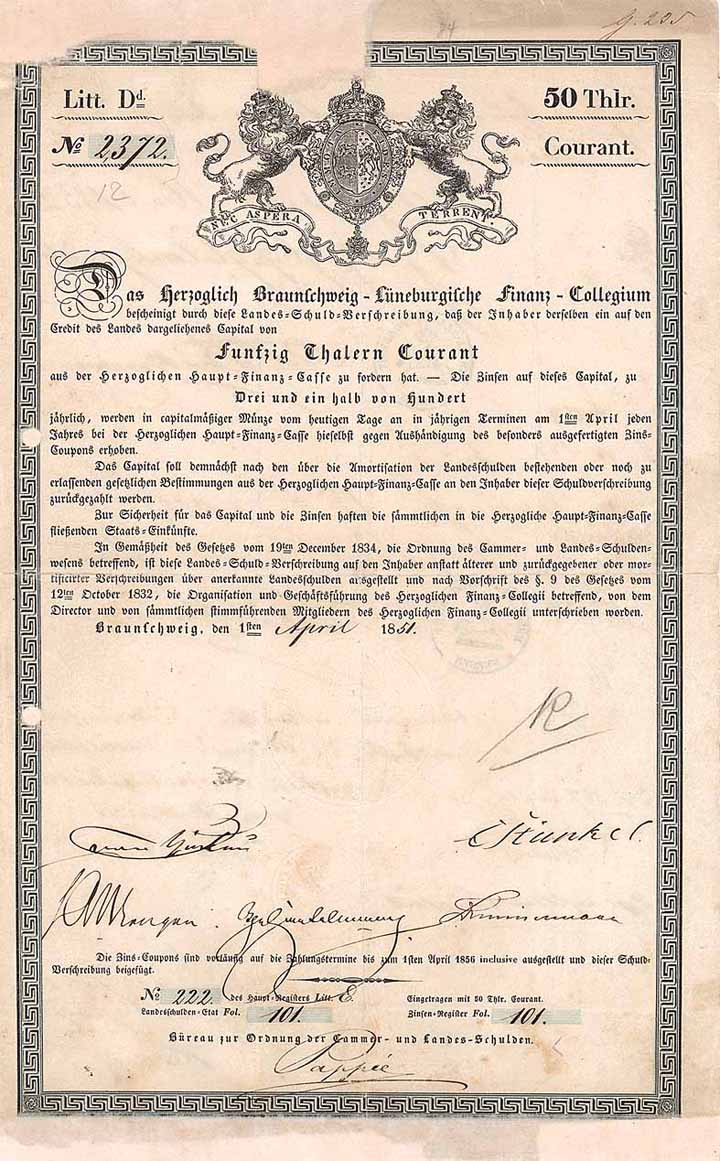 Litt. Dd. 50 Thlr.
No 2372. Courant.
12
NEC ASPERA TERRENT.
Das Herzoglich Braunschweig-Lüneburgische Finanz-Collegium
bescheinigt durch diese Landes-Schuld-Verschreibung, daß der Inhaber derselben ein auf den
Credit des Landes dargeliehenes Capital von
Funfzig Thalern Courant
aus der Herzoglichen Haupt-Finanz-Casse zu fordern hat. — Die Zinsen auf dieses Capital, zu
Drei und ein halb von Hundert
jährlich, werden in capitalmäßiger Münze vom heutigen Tage an in jährigen Terminen am 1sten April jeden
Jahres bei der Herzoglichen Haupt-Finanz-Casse hieselbst gegen Aushändigung des besonders ausgefertigten Zins-
Coupons erhoben.
Das Capital soll demnächst nach den über die Amortisation der Landesschulden bestehenden oder noch zu
erlassenden gesetzlichen Bestimmungen aus der Herzoglichen Haupt-Finanz-Casse an den Inhaber dieser Schuldverschreibung
zurückgezahlt werden.
Zur Sicherheit für das Capital und die Zinsen haften die sämmtlichen in die Herzogliche Haupt-Finanz-Casse
fließenden Staats-Einkünfte.
In Gemäßheit des Gesetzes vom 19ten December 1834, die Ordnung des Cammer- und Landes-Schulden-
wesens betreffend, ist diese Landes-Schuld-Verschreibung auf den Inhaber anstatt älterer und zurückgegebener oder mor-
tificirter Verschreibungen über anerkannte Landesschulden ausgestellt und nach Vorschrift des §. 9 des Gesetzes vom
12ten October 1832, die Organisation und Geschäftsführung des Herzoglichen Finanz-Collegii betreffend, von dem
Director und von sämmtlichen stimmführenden Mitgliedern des Herzoglichen Finanz-Collegii unterschrieben worden.
Braunschweig, den 1sten April 1851.
Die Zins-Coupons sind vorläufig auf die Zahlungstermine bis zum 1sten April 1856 inclusive ausgestellt und dieser Schuld-
Verschreibung beigefügt.
No 222. des Haupt-Registers Litt. E. Eingetragen mit 50 Thlr. Courant.
Landesschulden-Etat Fol. 101. Zinsen-Register Fol. 101.
Büreau zur Ordnung der Cammer- und Landes-Schulden.
Pappée